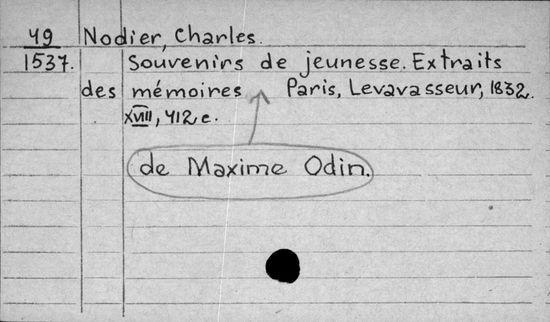 49 Nodier, Charles.
1537. Souvenirs de jeunesse. Extraits
des mémoires Paris, Levavasseur, 1832.
XVIII, 412 c.
de Maxime Odin.